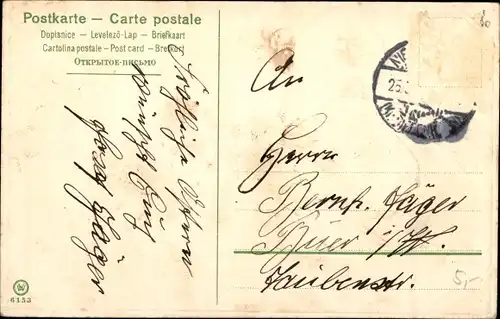 Postkarte — Carte postale
Dopisnice – Levelező-Lap – Briefkaart
Cartolina postale – Post card – Brefkort
ОТКРЫТОЕ-ПИСЬМО
Fröhliche Ostern
wünscht Euch
Jäger
An
Herrn
Bernh. Jäger
Buer i/W.
Taubenstr.
25.
5,-
6153